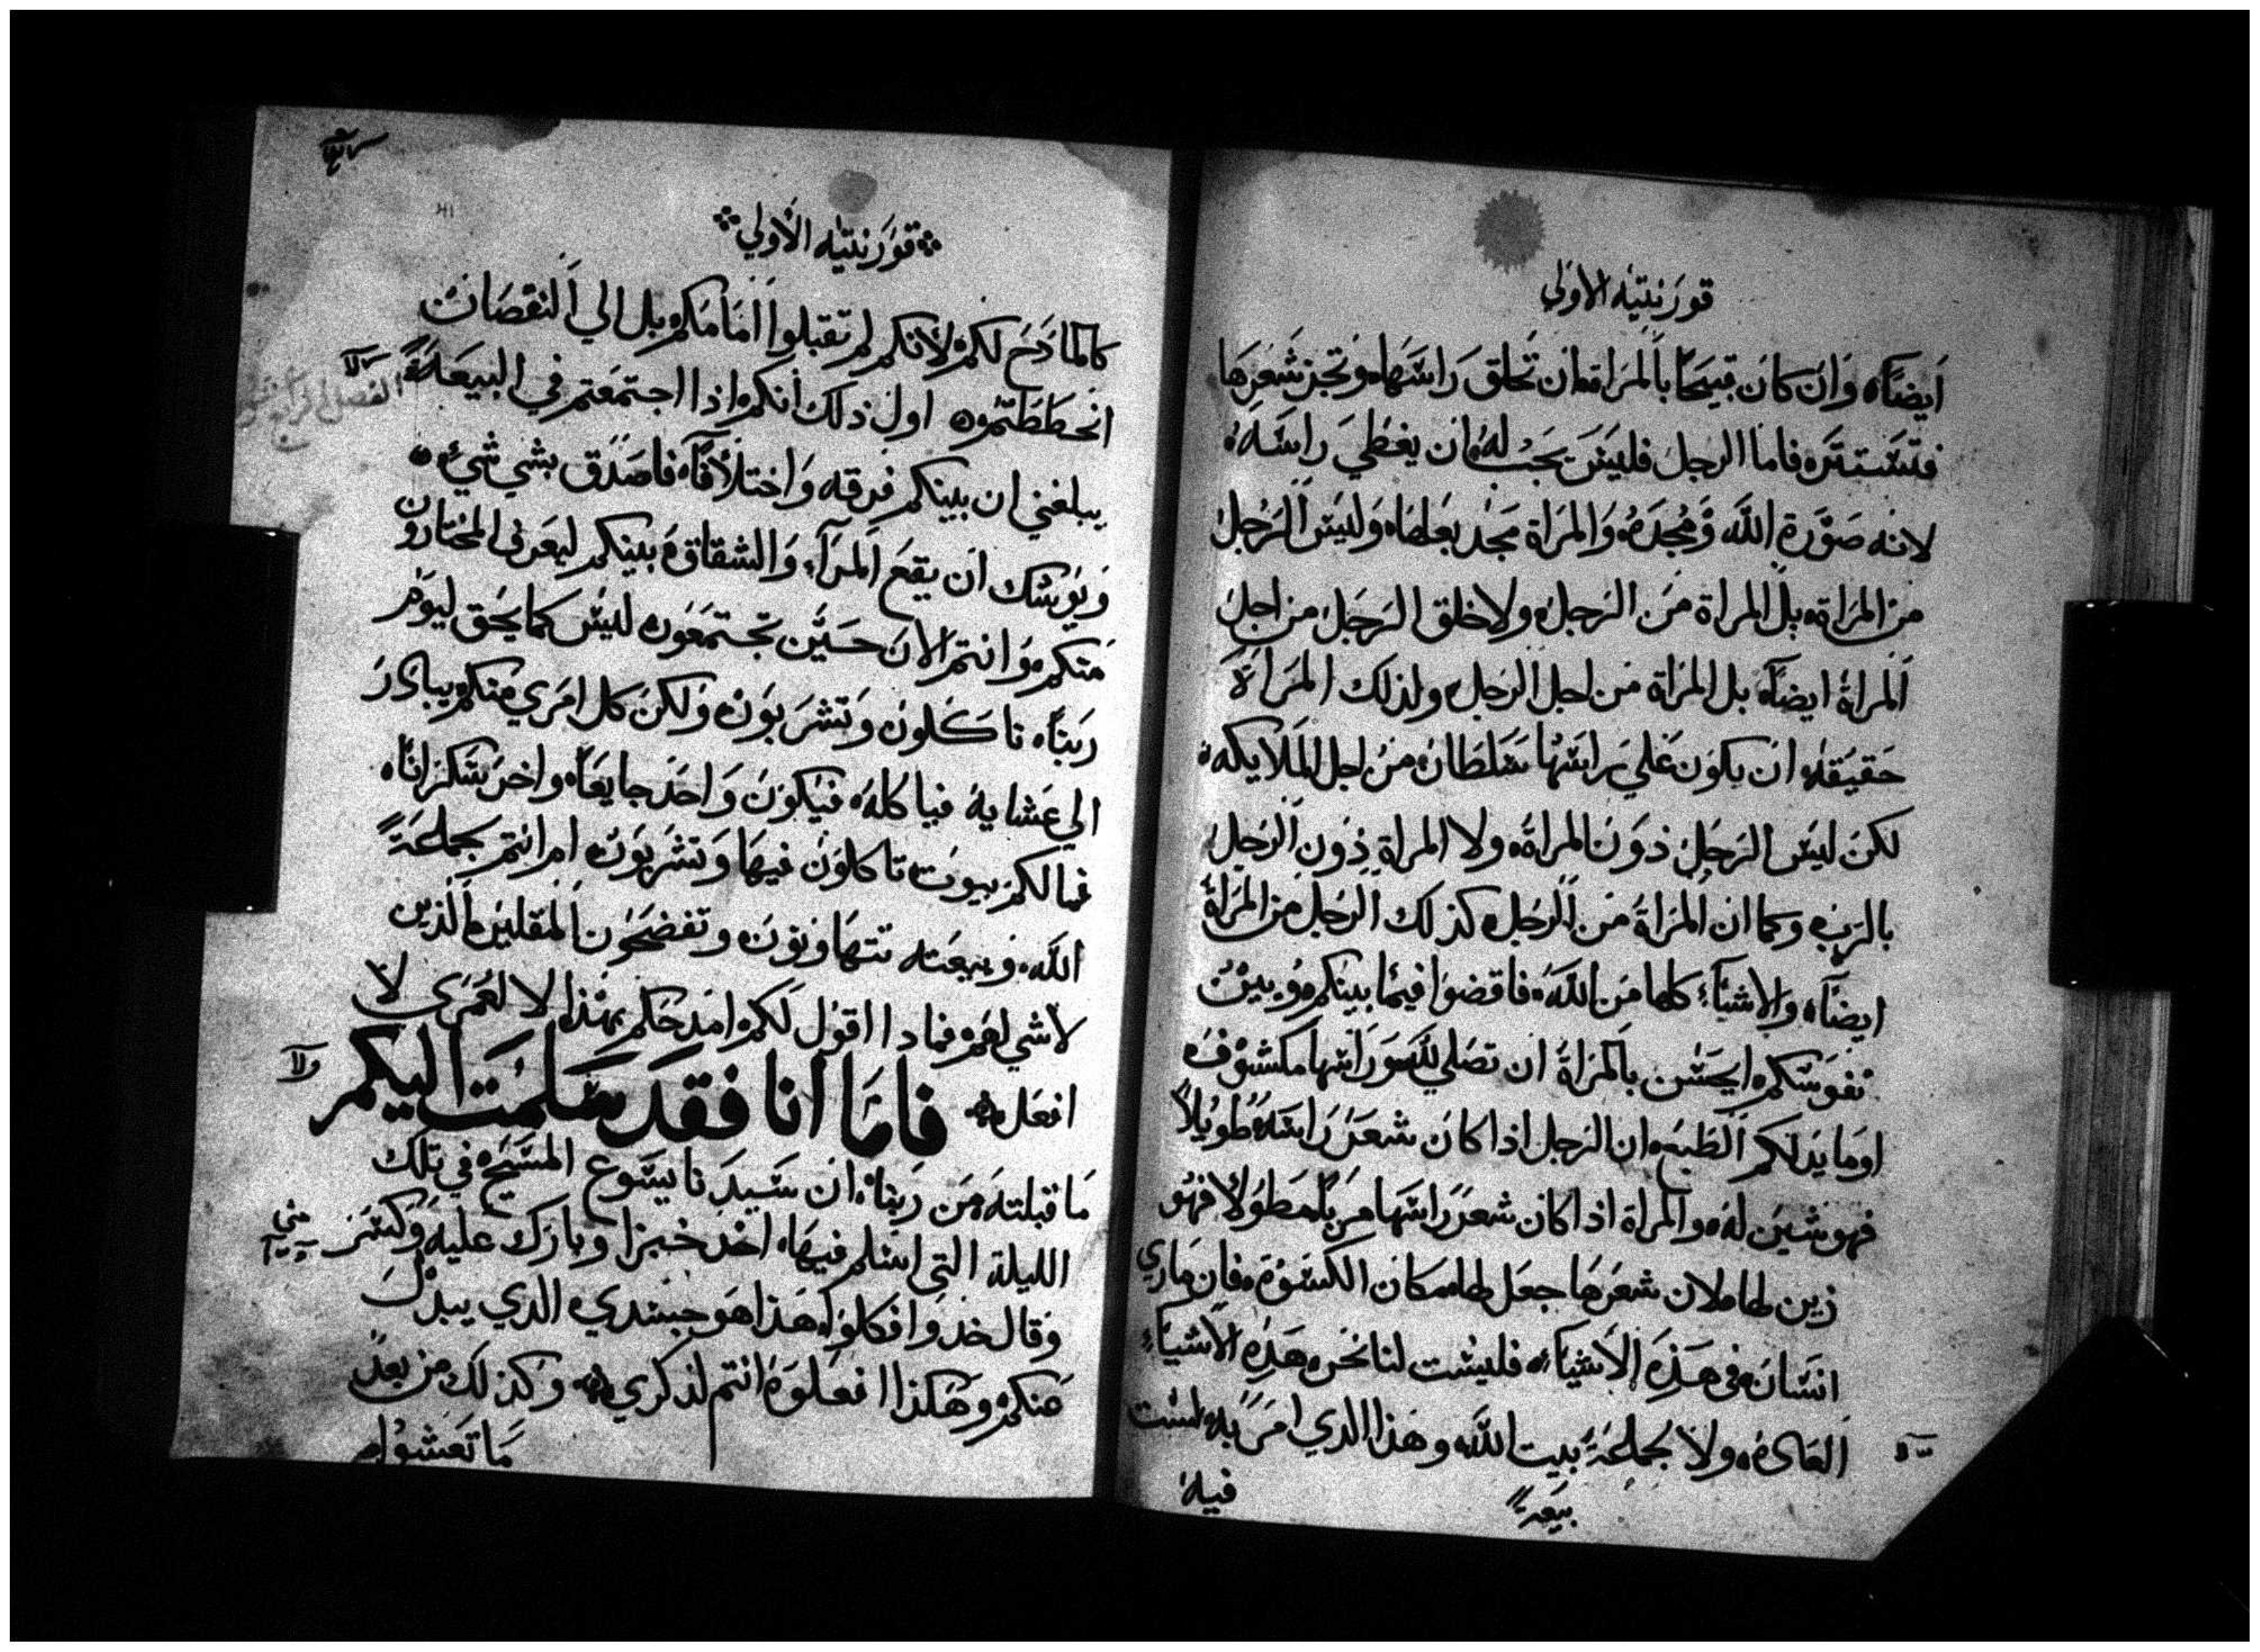 قورنتيه الاولي
ايضاً، وان كان قبيحاً بالمراة، ان تحلق راسها، وتجز شعرها
فتستتر، فاما الرجل فليس يجب له، ان يغطي راسه،
لانه صورة الله ومجده، والمراة مجد بعلها، وليس الرجل
من المراة، بل المراة من الرجل، ولا خلق الرجل من اجل
المراة ايضاً، بل المراة من اجل الرجل، ولذلك المراة
حقيقه، ان يكون علي راسها سلطان، من اجل الملايكه،
لكن ليس الرجل دون المراة، ولا المراة دون الرجل
بالرب، وكما ان المراة من الرجل، كذلك الرجل من المراة
ايضاً، والاشيآء كلها من الله، فاقضوا فيما بينكم، وبين
نفوسكم، ايحسن بالمراة ان تصلي لله، وراسها مكشوف
اوما يدلكم الطبع، ان الرجل اذا كان شعر راسه طويلاً
فهو شين له، والمراة اذا كان شعر راسها مربا مطولا فهو
زين لها، لان شعرها جعل لها، مكان الكسوة، فان ماري
انسان في هذه الاشيآء، فليست لنا نحن هذه الاشيآء
العاده، ولا لجماعة بيت الله وهذا الدي امر به لست
بيعة
فيه
قورنتيه الاولي
كالمادح لكم، لانكم لم تقبلوا امامكم، بل الي النقصانت
انحططتم، اول ذلك انكم، اذا اجتمعتم في البيعة
الفصل الرابع
يبلغني ان بينكم فرقه واختلافاً، فاصدق بشي شي،
ويوشك ان يقع المرآء، والشقاق، بينكم ليعرف المختارون
منكم، وانتم الان حين تجتمعون، ليس كما يحق ليوم
ربنا، تاكلون وتشربون، ولكن كل امري منكم يبادر
الي عشايه فياكله، فيكون واحد جايعاً، واخر سكراناً،
فما لكم بيوت، تاكلون فيها وتشربون، ام انتم بجماعة
الله، وبيعته تتهاونون، وتفضحون المقلين، الذين
لا شي لهم، فمادا اقول لكم، امدحكم بهذا، لا لعمري لا
افعل، فاما انا فقد سلمت اليكم
ولا
ما قبلته، من ربنا، ان سيدنا يسوع المسيح، في تلك
الليلة التي اسلم فيها، اخد خبزا وبارك عليه وكسر
وقال خدوا فكلوا، هذا هو جسدي، الدي يبدل
عنكم، وهكذا افعلوا، انتم لذكري، وكذلك من بعد
ما تعشوا